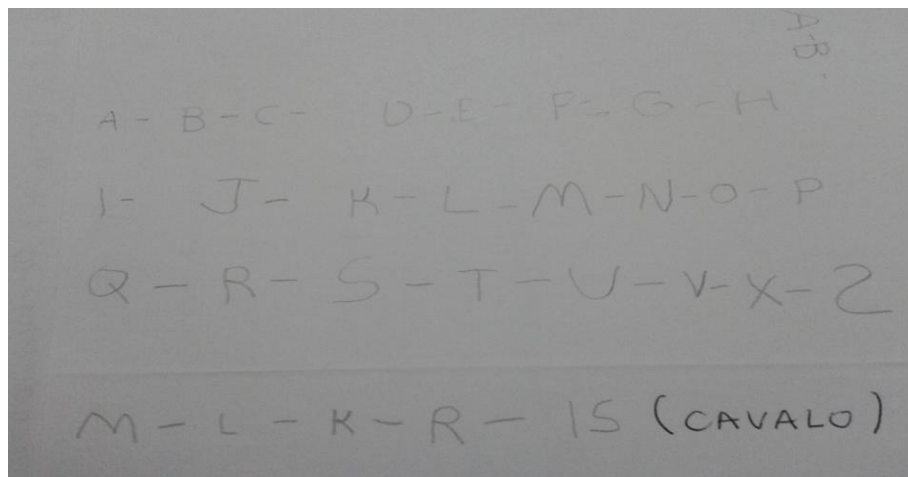 A-B.
A - B - C - D - E - F - G - H
I - J - K - L - M - N - O - P
Q - R - S - T - U - V - X - Z
M - L - K - R - IS (CAVALO)